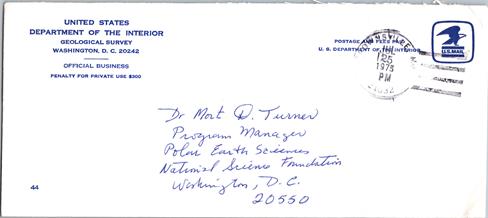 UNITED STATES
DEPARTMENT OF THE INTERIOR
GEOLOGICAL SURVEY
WASHINGTON, D. C. 20242
OFFICIAL BUSINESS
PENALTY FOR PRIVATE USE $300
POSTAGE AND FEES PAID
U. S. DEPARTMENT OF THE INTERIOR
U.S. MAIL
JUL
25
1973
PM
Dr Mort D. Turner
Program Manager
Polar Earth Sciences
National Science Foundation
Washington, D.C.
20550
44